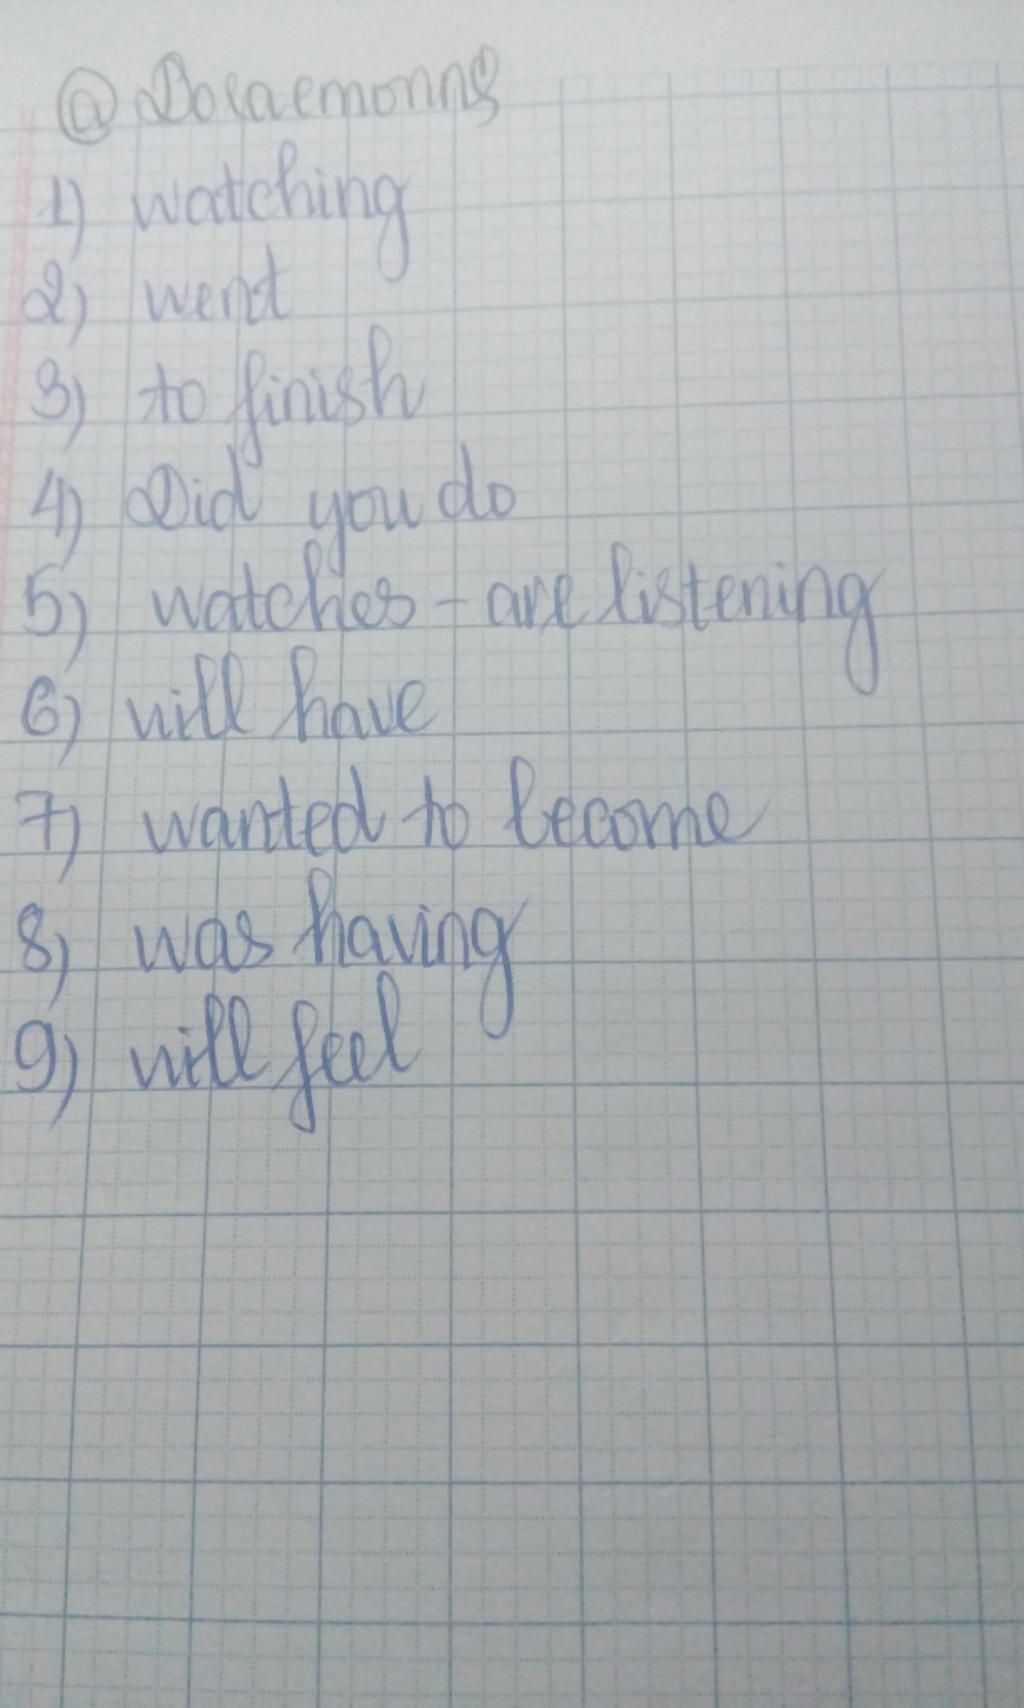 @Doraemonng
1) watching
2) went
3) to finish
4) Did you do
5) watches - are listening
6) will have
7) wanted to become
8) was having
9) will feel